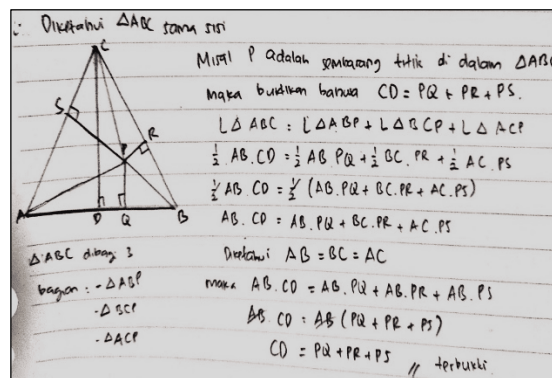 : Diketahui △ABC sama sisi
Misal P adalah sembarang titik di dalam △ABC
maka buktikan bahwa CD = PQ + PR + PS.
L△ABC = L△ABP + L△BCP + L△ACP
½ AB.CD = ½ AB.PQ + ½ BC.PR + ½ AC.PS
½ AB.CD = ½ (AB.PQ + BC.PR + AC.PS)
AB.CD = AB.PQ + BC.PR + AC.PS
Diketahui AB = BC = AC
maka AB.CD = AB.PQ + AB.PR + AB.PS
AB.CD = AB (PQ + PR + PS)
CD = PQ + PR + PS // terbukti
C
S
R
P
A
D
Q
B
△ABC dibagi 3
bagian : - △ABP
- △BCP
- △ACP